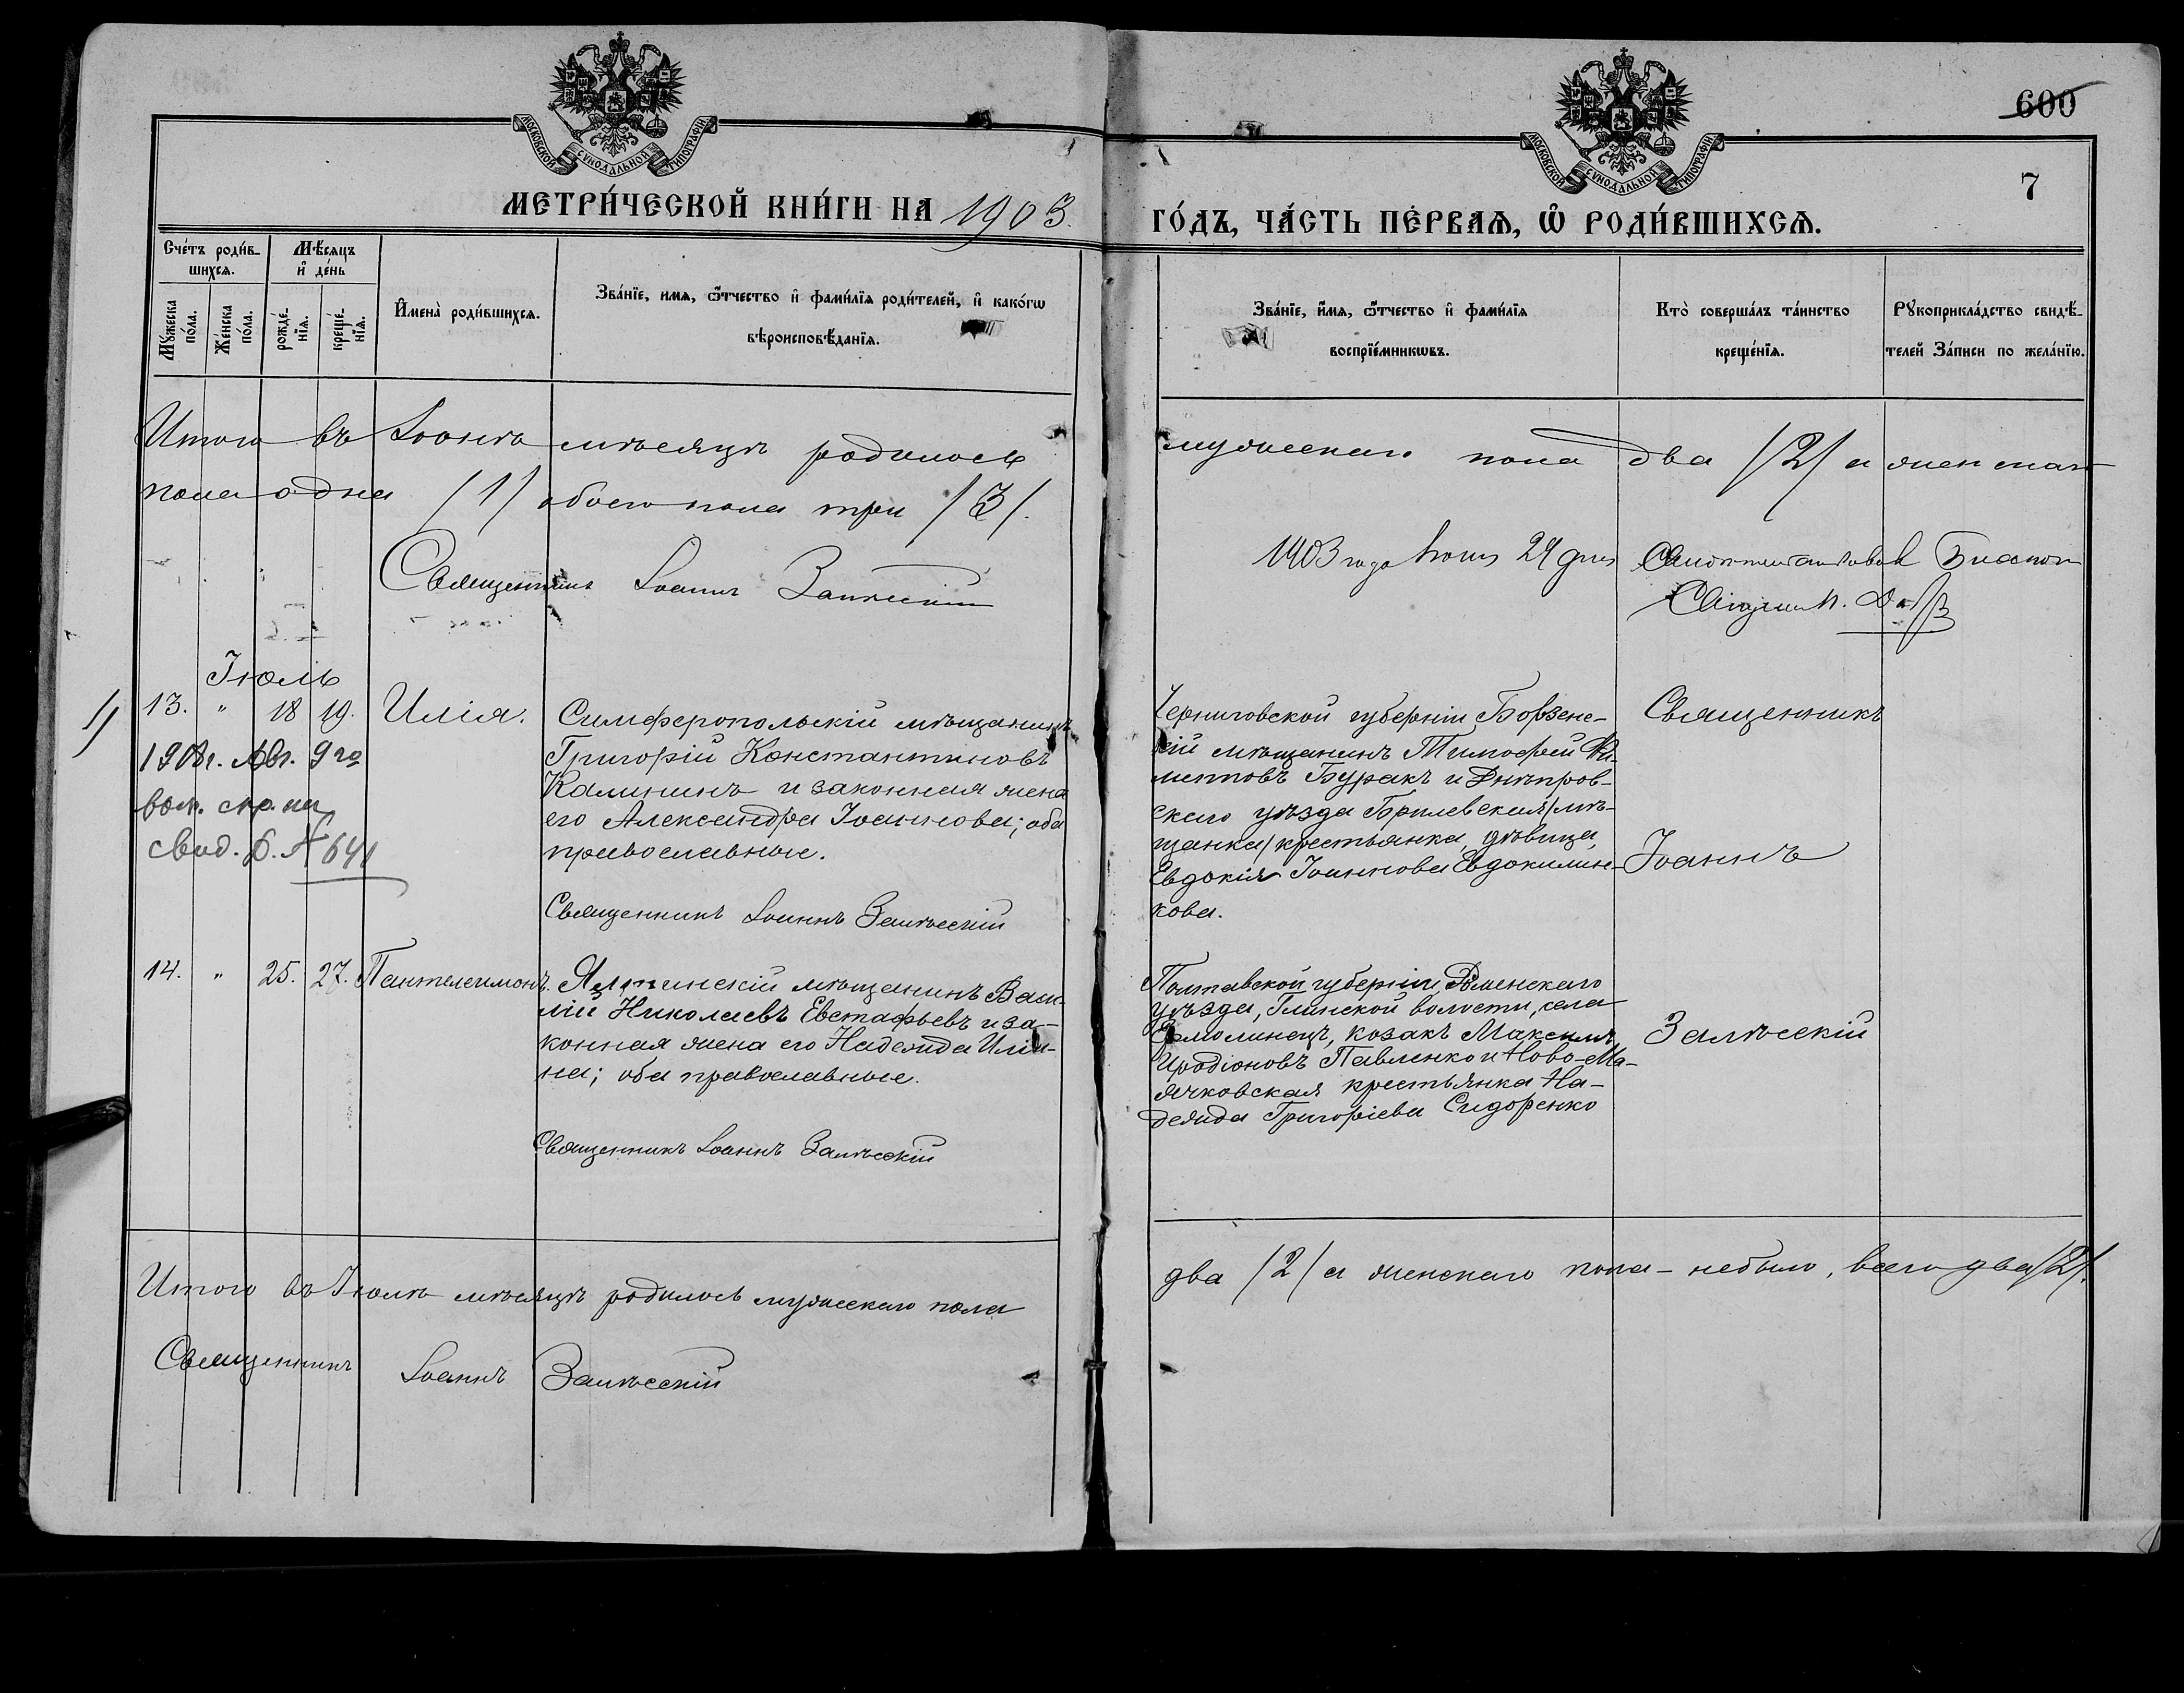 600
7
МОСКОВСКОЙ СѴНОДАЛЬНОЙ ТИПОГРАФІИ
МОСКОВСКОЙ СѴНОДАЛЬНОЙ ТИПОГРАФІИ
МЕТРИ́ЧЕСКОЙ КНИ́ГИ НА 1903.
ГО́ДЪ, ЧА́СТЬ ПЕ́РВАѦ, Ѡ РОДИ́ВШИХСѦ.
Сче́тъ роди́в-
шихсѧ.
Мѣ́сѧцъ
и де́нь
Мꙋ́жеска
по́ла.
Же́нска
по́ла.
рожде́-
нїѧ.
креще́-
нїѧ.
Имена̀ роди́вшихсѧ.
Зва́нїе, имѧ, ѻ҆́тчество и фами́лїѧ роди́телей, и како́гѡ
вѣроисповѣ́данїѧ.
Зва́нїе, и́мѧ, ѻ҆́тчество и фами́лїѧ
воспрїе́мникѡвъ.
Кто̀ соверша́лъ та́инство
креще́нїѧ.
Рꙋкоприкла́дство свидѣ́-
телей За́писи по жела́нїю.
Итого въ Іюнѣ мѣсяцѣ родилось мужескаго пола два /2/ а женскаго
пола одна /1/ обоего пола три /3/.
Священникъ Іоаннъ Залѣсскій
1903 года Іюня 24 дня
Іюль
13. " 18 19. Илія.
Симферопольскій мѣщанинъ
Григорій Константиновъ
Калининъ и законная жена
его Александра Іоаннова; оба
православные.
Священникъ Іоаннъ Залѣсскій
Авг. 9го
свид. №641
Черниговской губерніи Борзенс-
кій мѣщанинъ Тимофей Фи-
липповъ Буракъ и Днѣпров-
скаго уѣзда Брилевская /мѣ-
щанка/ крестьянка, дѣвица,
Евдокія Іоаннова Евдокимен-
кова.
Священникъ
Іоаннъ
Залѣсскій
14. " 25. 27. Пантелеимонъ.
Ялтинскій мѣщанинъ Васи-
лій Николаевъ Евстафьевъ и за-
конная жена его Надежда Ильи-
на; оба православные.
Священникъ Іоаннъ Залѣсскій
Полтавской губерніи, Роменскаго
уѣзда, Глинской волости, села
козакъ Максимъ
Иродіоновъ Павленко и Ново-Ма-
ячковская крестьянка На-
дежда Григоріева Сидоренко
Итого въ Іюлѣ мѣсяцѣ родилось мужескаго пола два /2/ а женскаго пола - небыло, всего два /2/.
Священникъ Іоаннъ Залѣсскій